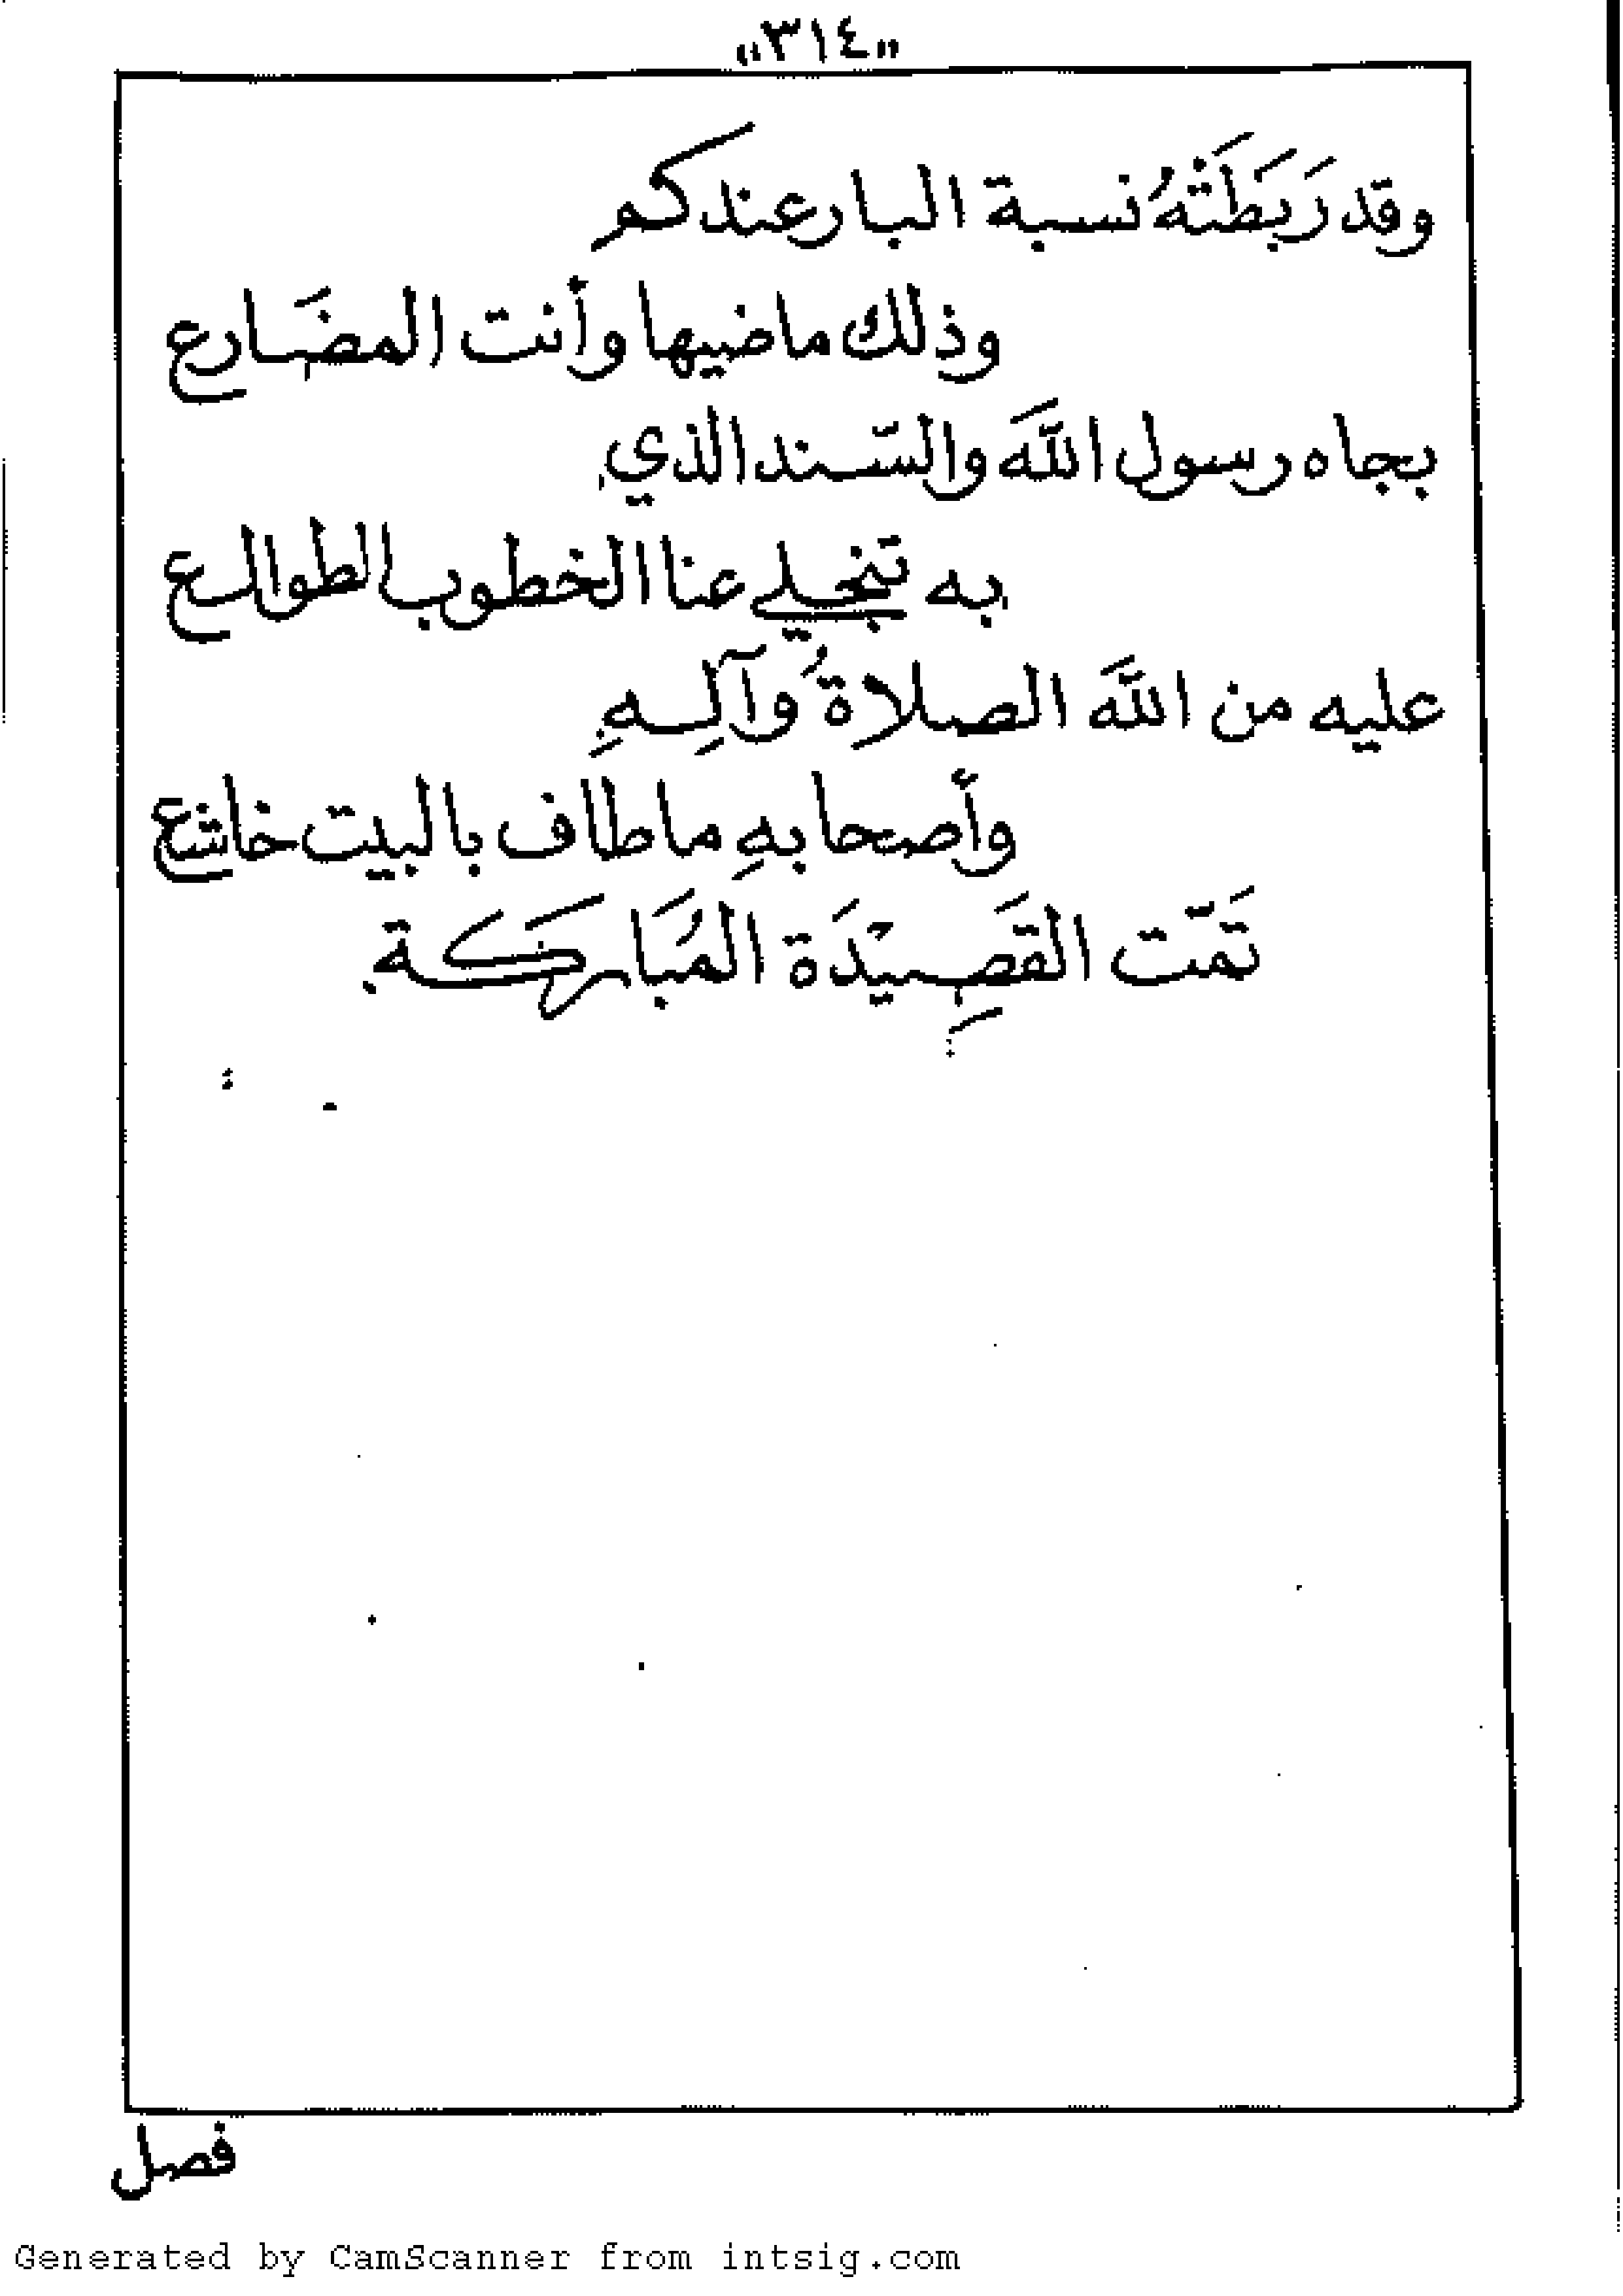 «٣١٤»
وقد رَبَطَتْهُ نسبة البار عندكم
وذلك ماضيها وأنت المضَارع
بجاه رسول اللَّه والسّند الذي
به تنجلي عنا الخطوب الطوالع
عليه من اللَّه الصلاةُ وآلِهِ
وأصحابهِ ما طاف بالبيت خاشع
تَمّت القَصِيْدَة المُبَاركة.
فصل
Generated by CamScanner from intsig.com